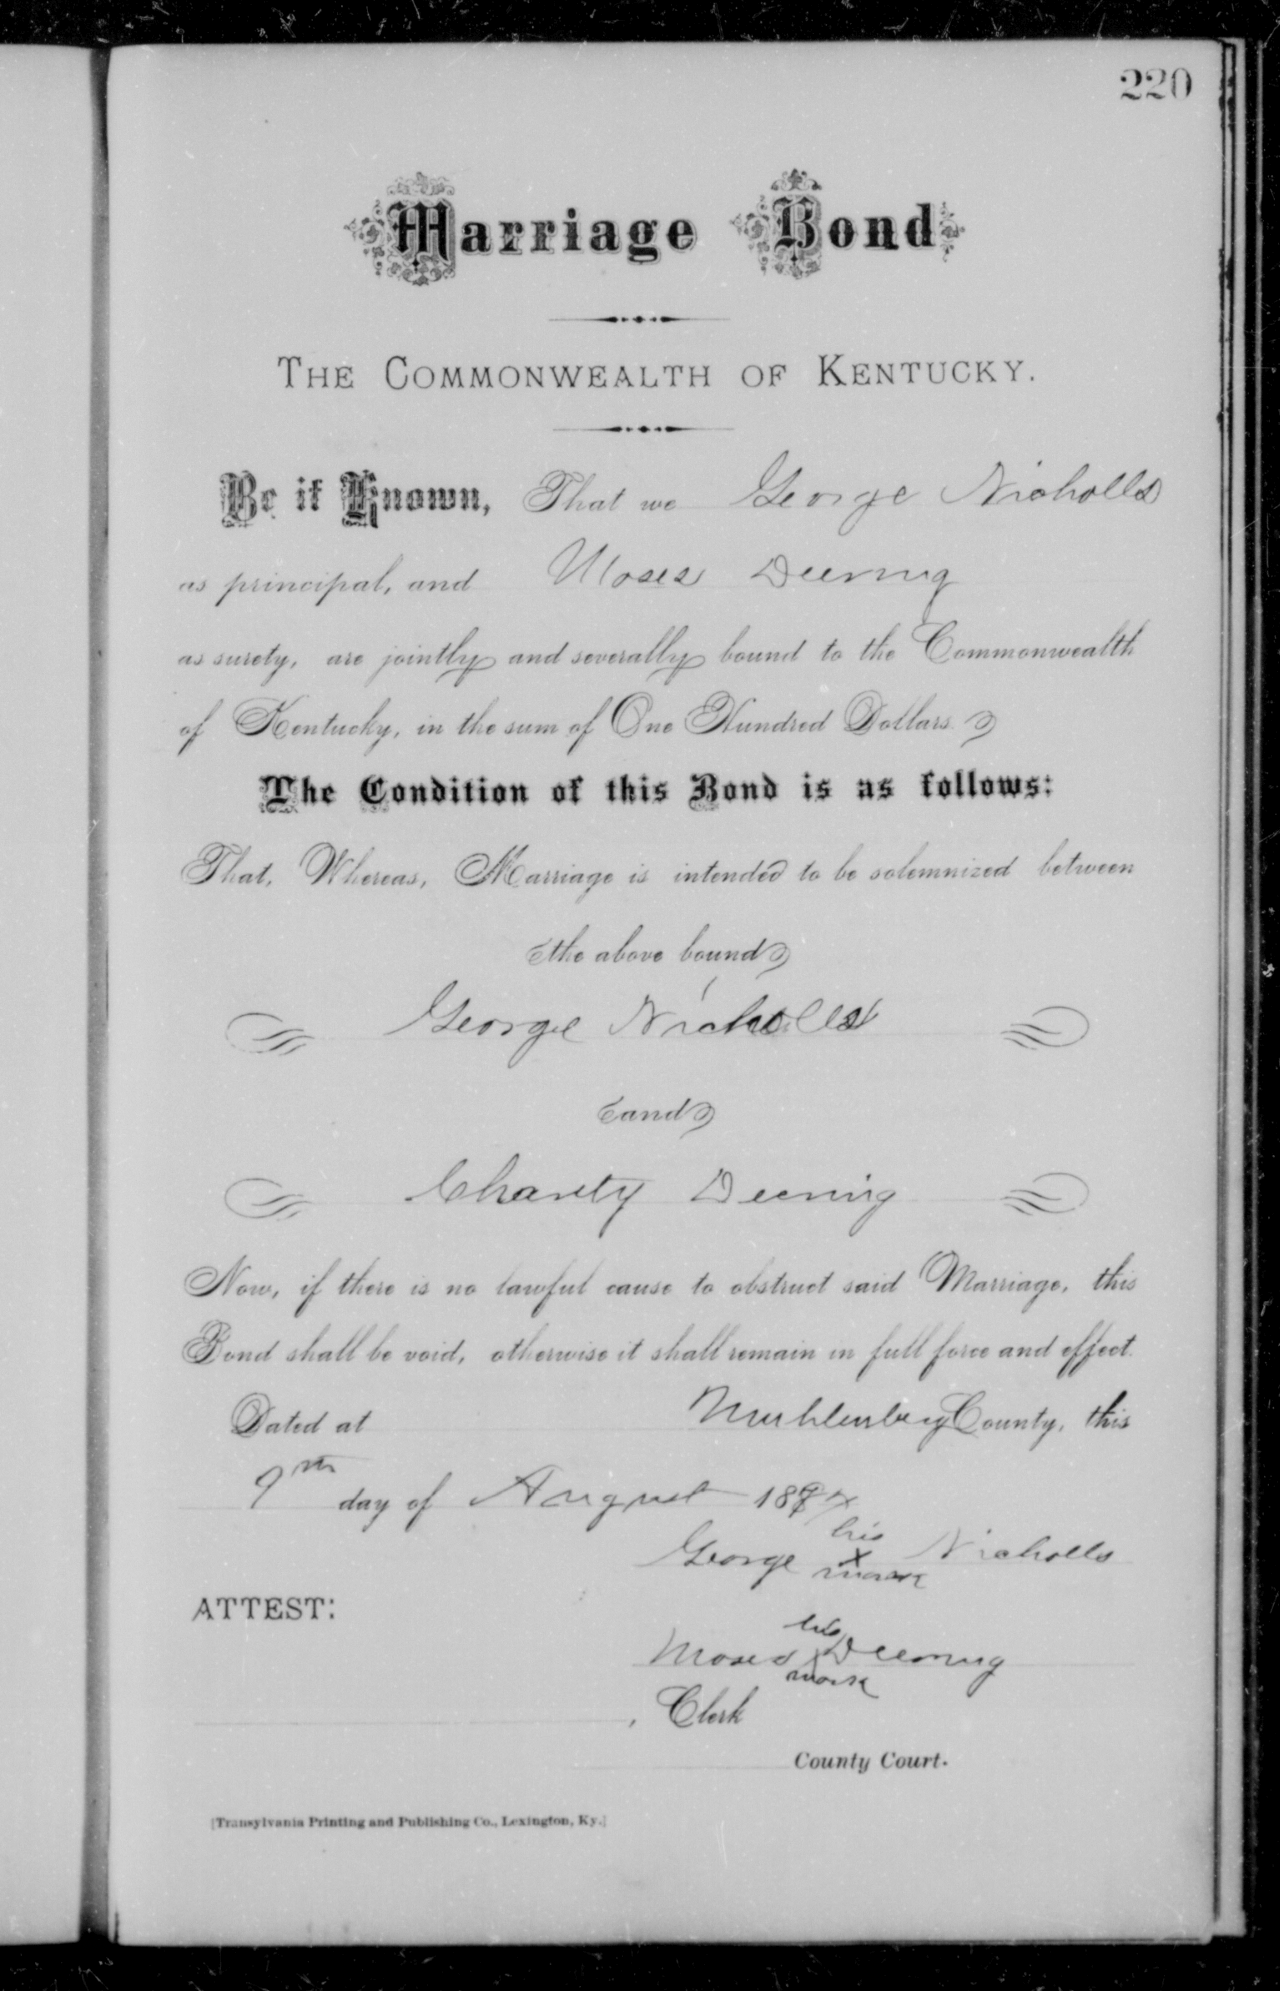 220
Marriage Bond
THE COMMONWEALTH OF KENTUCKY.
Be it Known, That we George Nicholls
as principal, and Moses Deering
as surety, are jointly and severally bound to the Commonwealth
of Kentucky, in the sum of One Hundred Dollars.
The Condition of this Bond is as follows:
That, Whereas, Marriage is intended to be solemnized between
the above bound
George Nicholls
and
Charity Deering
Now, if there is no lawful cause to obstruct said Marriage, this
Bond shall be void, otherwise it shall remain in full force and effect.
Dated at Muhlenberg County, this
9th day of August 18
his
George X Nicholls
mark
ATTEST:
his
Moses X Deering
mark
, Clerk
County Court.
[Transylvania Printing and Publishing Co., Lexington, Ky.]